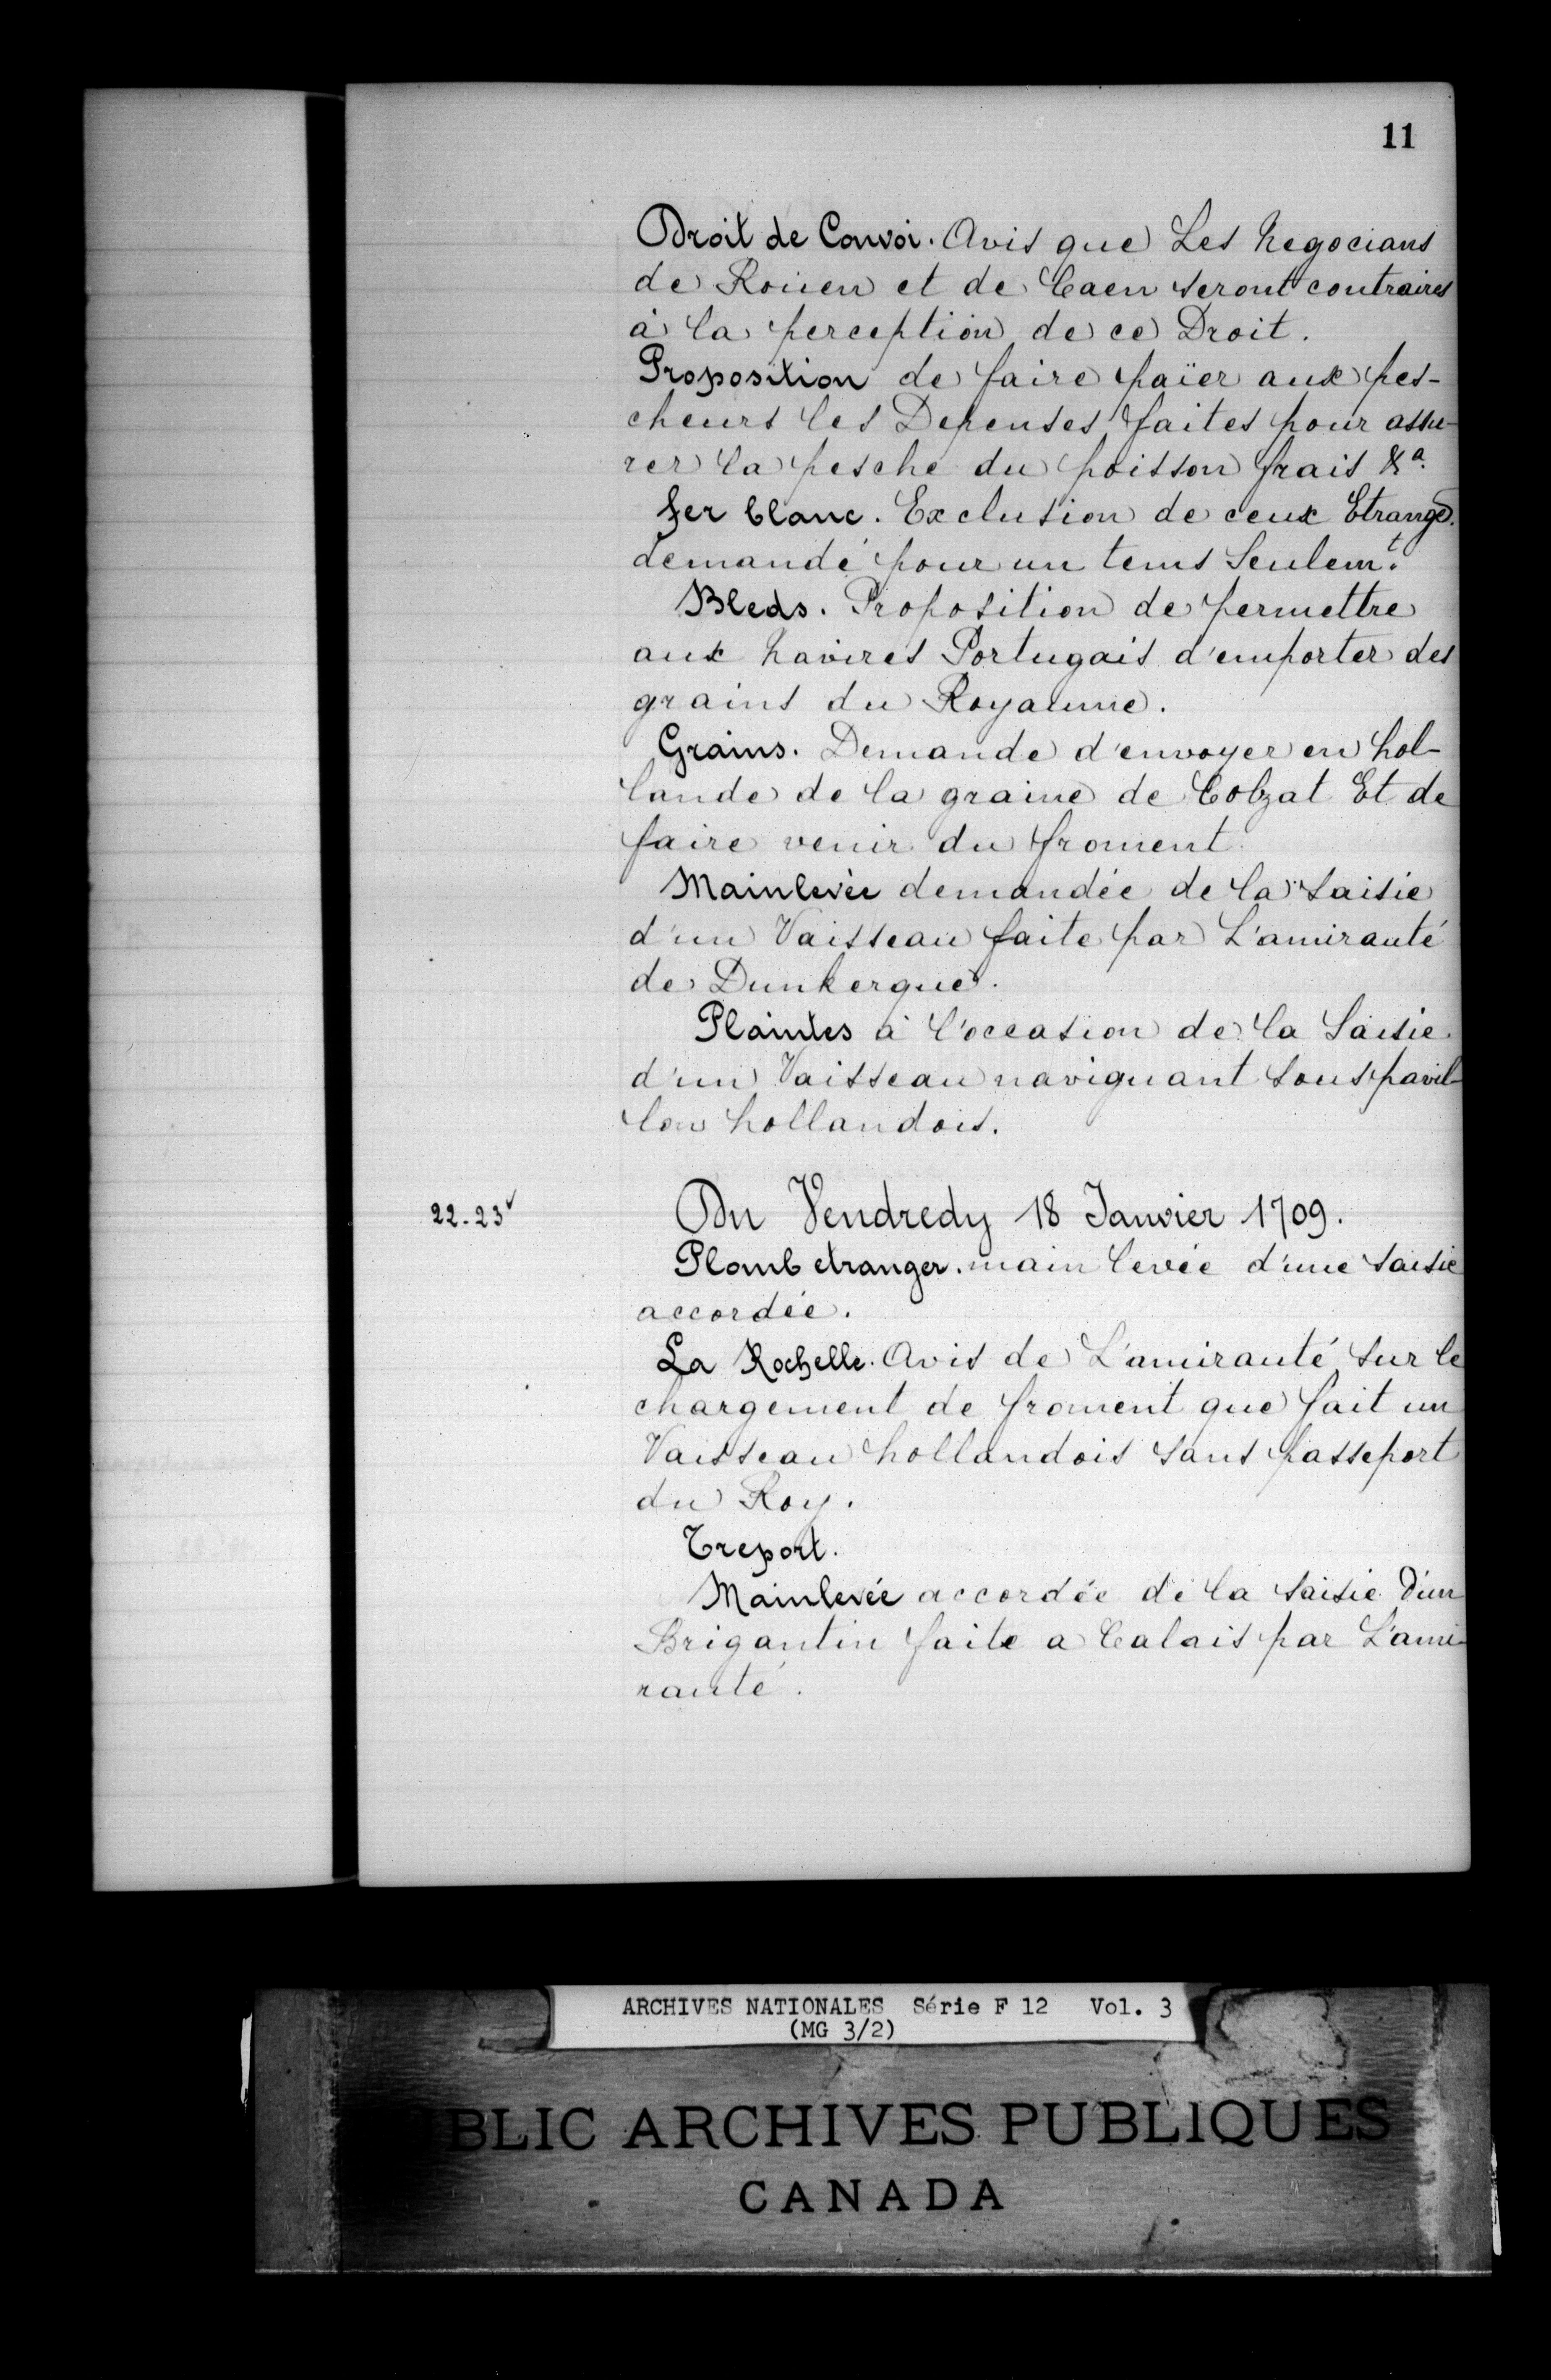 11
Droit de Convoi. Avis que Les Negocians
de Roüen et de Caen seront contraires
à la perception de ce Droit.
Proposition de faire païer aux pes-
cheurs les Depenses faites pour assu-
rer la pesche du poisson frais &a.
fer blanc. Exclusion de ceux Etrange.
demandé pour un tems Seulem.t
Bleds. Proposition de permettre
aux Navires Portugais d'emporter des
grains du Royaume.
Grains. Demande d'envoyer en hol-
lande de la graine de Colzat Et de
faire venir du froment
Mainlevée demandée de la saisie
d'un Vaisseau faite par L'amirauté
de Dunkerque.
Plaintes à l'occasion de la Saisie
d'un Vaisseau naviguant sous pavil-
lon hollandois.
22-23 v
Du Vendredy 18 Janvier 1709.
Plomb etranger. main levée d'une saisie
accordée.
La Rochelle. Avis de L'amirauté sur le
chargement de froment que fait un
Vaisseau hollandois sans passeport
du Roy.
Treport.
Mainlevée accordée de la saisie d'un
Brigantin faite a Calais par L'ami-
rauté.
ARCHIVES NATIONALES Série F 12 Vol. 3
(MG 3/2)
BLIC ARCHIVES PUBLIQUES
CANADA